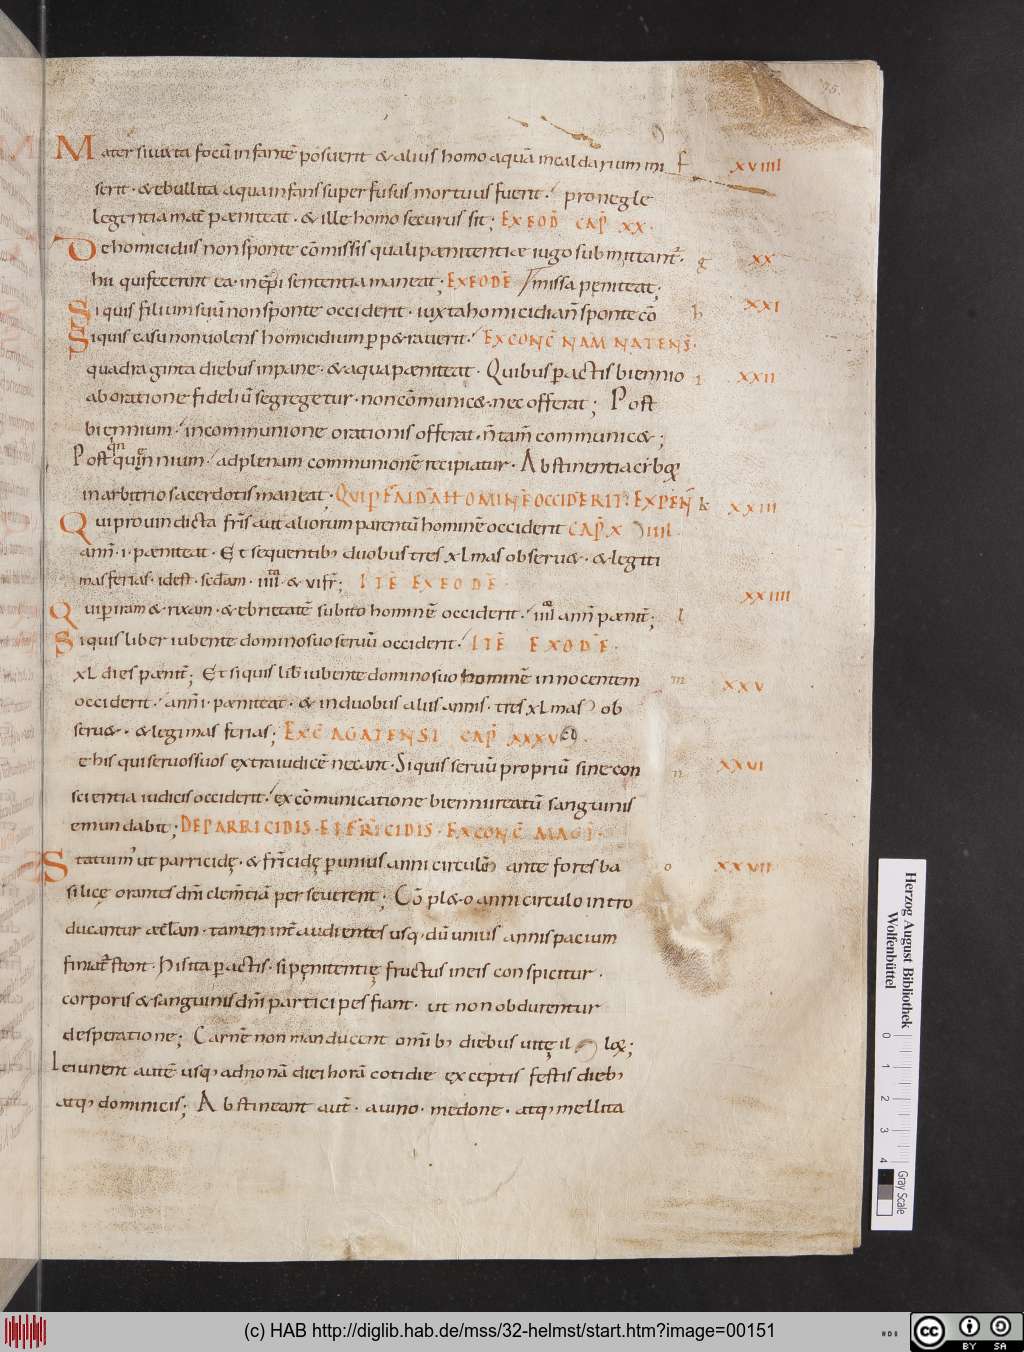 75.
Mater si iuxta focū infantē posuerit & alius homo aquā in caldarium mi f xviiii
serit · & ebullita aqua infans superfusus mortuus fuerit · pro negle
legentia mat̄ pæniteat · & ille homo securus sit; EX EOD̄ CAP̄ XX ·
De homicidiis non sponte cōmissis quali pænitentiæ iugo submittant̄ · g xx
hii qui fecerint ea · in ep̄i sententia maneat; EX EODĒ missa peniteat;
Si quis filium suū non sponte occiderit · iuxta homicidiā n̄ sponte cō h xxi
Si quis casu non uolens homicidium pp&rauerit · EX CONC̄ NAMNATENS̄ ·
quadraginta diebus in pane · & aqua pæniteat · Quibus pactis biennio i xxii
ab oratione fideliū segregetur · non cōmunic& · nec offerat; Post
biennium · in communione orationis offerat · n̄ tam̄ communic&;
Post quīn nium · ad plenam communionē recipiatur · Abstinentia ciboꝝ
in arbitrio sacerdotis maneat; QUI P FAIDĀ HOMINĒ OCCIDERIT: EX PEN̄ k xxiii
Qui pro uindicta fr̄is aut aliorum parentū hominē occiderit CAP̄ X IIII ·
ann̄ · i · pæniteat · Et sequentib; duobus tres xlmas obseru& · & legiti
mas ferias · idest · secdam · iiii & vi fr̄; ITĒ EX EODĒ · xxiiii
Qui p iram & rixam · & ebrietatē subito hominē occiderit · iiii ann̄ pænit̄; l
Si quis liber iubente domino suo seruū occiderit · ITĒ EXODĒ ·
xl dies pænit̄; Et si quis lib̄ iubente domino suo hominē innocentem m xxv
occiderit · ann̄ i · pæniteat · & in duobus aliis annis · tres xl mas ob
seru& · & legimas ferias; EX C̄ AGATENSI CAP̄ XXXV
e his qui seruos suos extra iudicē necant · Si quis seruū propriū sine con n xxvi
scientia iudicis occiderit · excōmunicatione biennii reatū sanguinis
emundabit; DE PARRICIDIS · ET FR̄ICIDIS · EX CONC̄ MAḠ ·
Statuim' ut parricidę · & fr̄icidę p unius anni circulū ante fores ba o xxvii
silicę orantes dn̄i clem̄tiā perseuerent; Cōpl&o anni circulo intro
ducantur æccl̄am · tamen int̄ audientes usq; dū unius anni spacium
finiat̄ stent · His ita pactis · si pęnitentię fructus in eis conspicitur ·
corporis & sanguinis dn̄i participes fiant · ut non obdurentur
desperatione; Carnē non manducent omīb; diebus uitę il loꝝ;
Ieiunent autē usq; ad nonā diei horā cotidie exceptis festis dieb;
atq; dominicis; Abstineant aut̄ · a uino · medone · atq; mellita
Herzog August Bibliothek
Wolfenbüttel
0 1 2 3 4
Gray Scale
(c) HAB http://diglib.hab.de/mss/32-helmst/start.htm?image=00151
cc BY SA